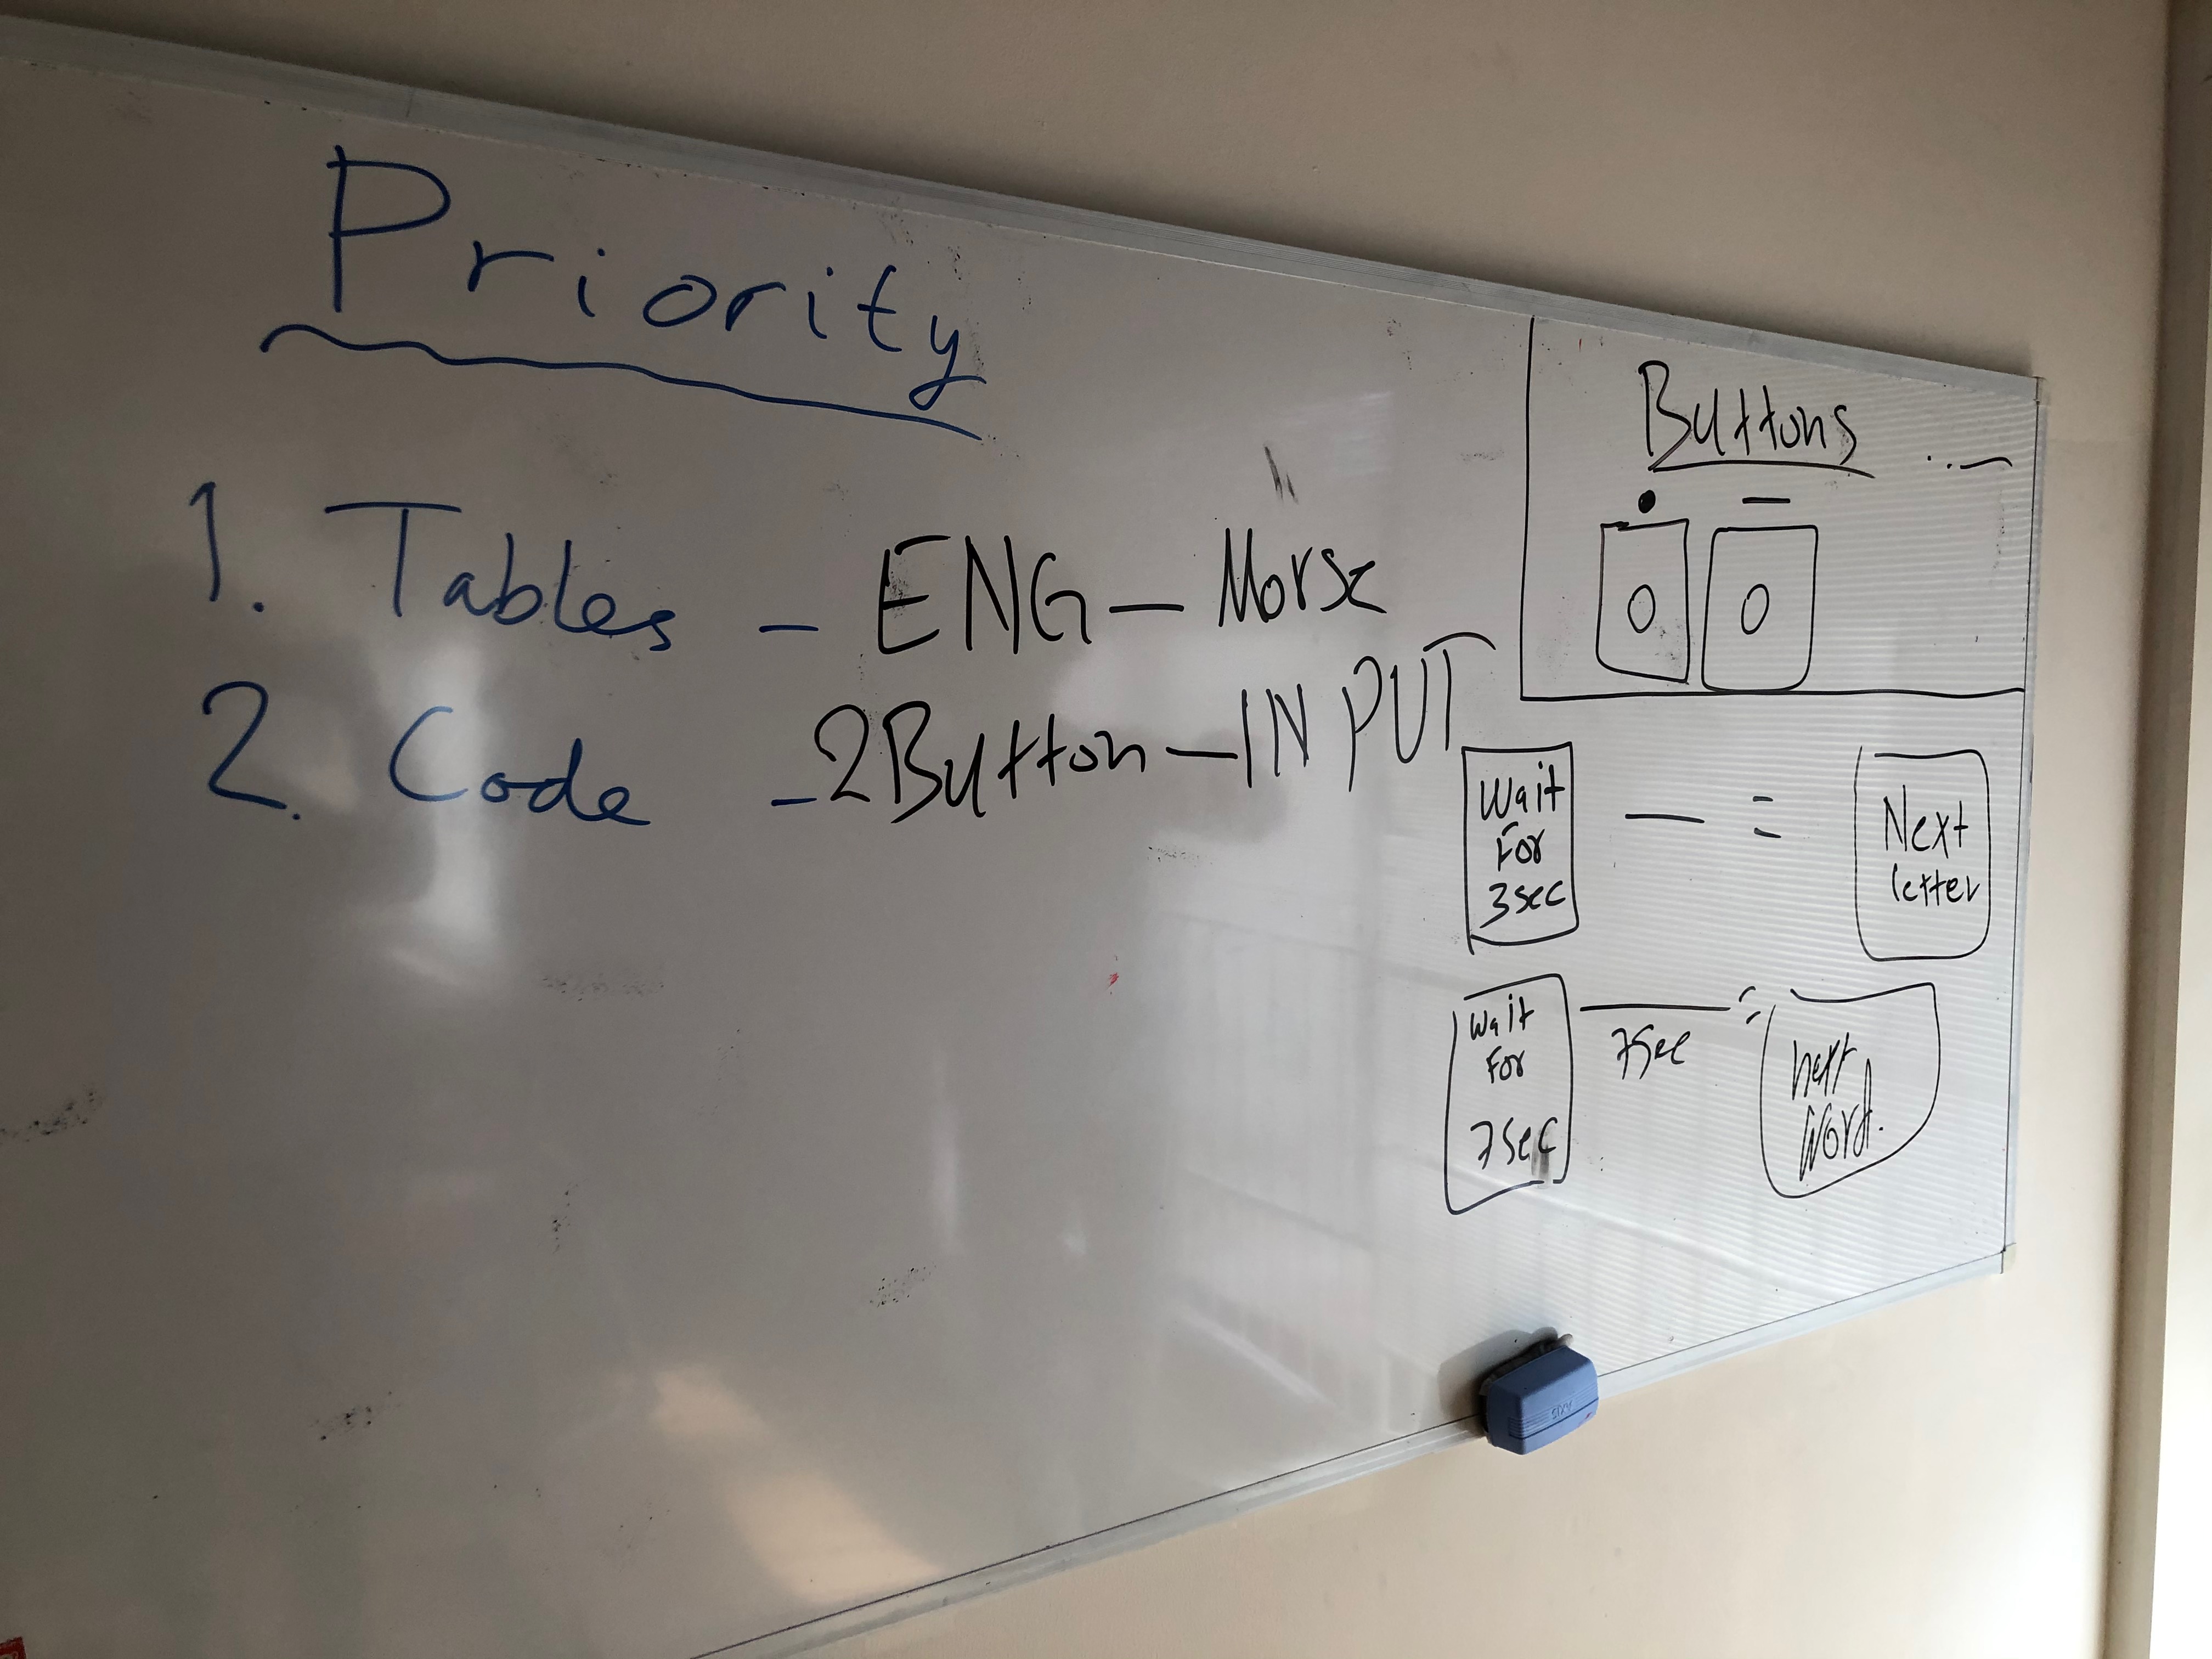 Priority
1. Tables - ENG - Morse
2. Code - 2Button - INPUT
Buttons ..—
• —
0 0
Wait
For
3sec
— =
Next
letter
Wait
For
7sec
7sec
=
next
word.
AXIS